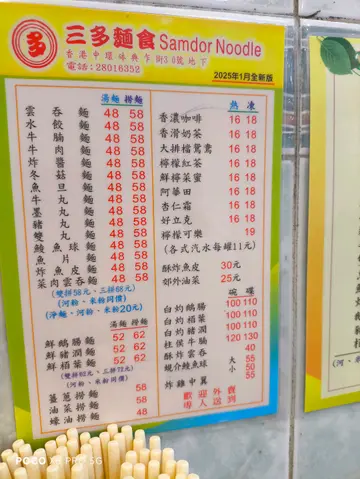 多
三多麵食 Samdor Noodle
香港中環味典乍街30號地下
電話:28016352
2025年1月全新版
湯麵 撈麵
雲吞麵 48 58
水餃麵 48 58
牛肉麵 48 58
牛腩麵 48 58
炸醬麵 48 58
冬菇麵 48 58
魚旦麵 48 58
牛丸麵 48 58
墨丸麵 48 58
豬丸麵 48 58
雙丸麵 48 58
鯪魚球麵 48 58
魚片麵 48 58
炸魚皮麵 48 58
菜肉雲吞麵 48 58
(雙拼58元、三拼68元)
(河粉、米粉同價)
(淨麵、河粉、米粉20元)
湯麵 撈麵
鮮鵝腸麵 52 62
鮮豬潤麵 52 62
鮮栢葉麵 52 62
(雙拼62元、三拼72元)
(河粉、米粉同價)
薑葱撈麵 58
油菜撈麵 58
蠔油撈麵 48
熱 凍
香濃咖啡 16 18
香滑奶茶 16 18
大排檔鴛鴦 16 18
檸檬紅茶 16 18
鮮檸菜蜜 16 18
阿華田 16 18
杏仁霜 16 18
好立克 16 18
檸檬可樂 19
(各式汽水每罐11元)
酥炸魚皮 30元
郊外油菜 25元
碗 碟
白灼鵝腸 100 110
白灼栢葉 100 110
白灼豬潤 100 110
柱侯牛腩 120 130
酥炸雲吞 40
鯪魚球 大 55
小 50
炸雞中翼 55
歡迎外賣
專人送到
POCO SG